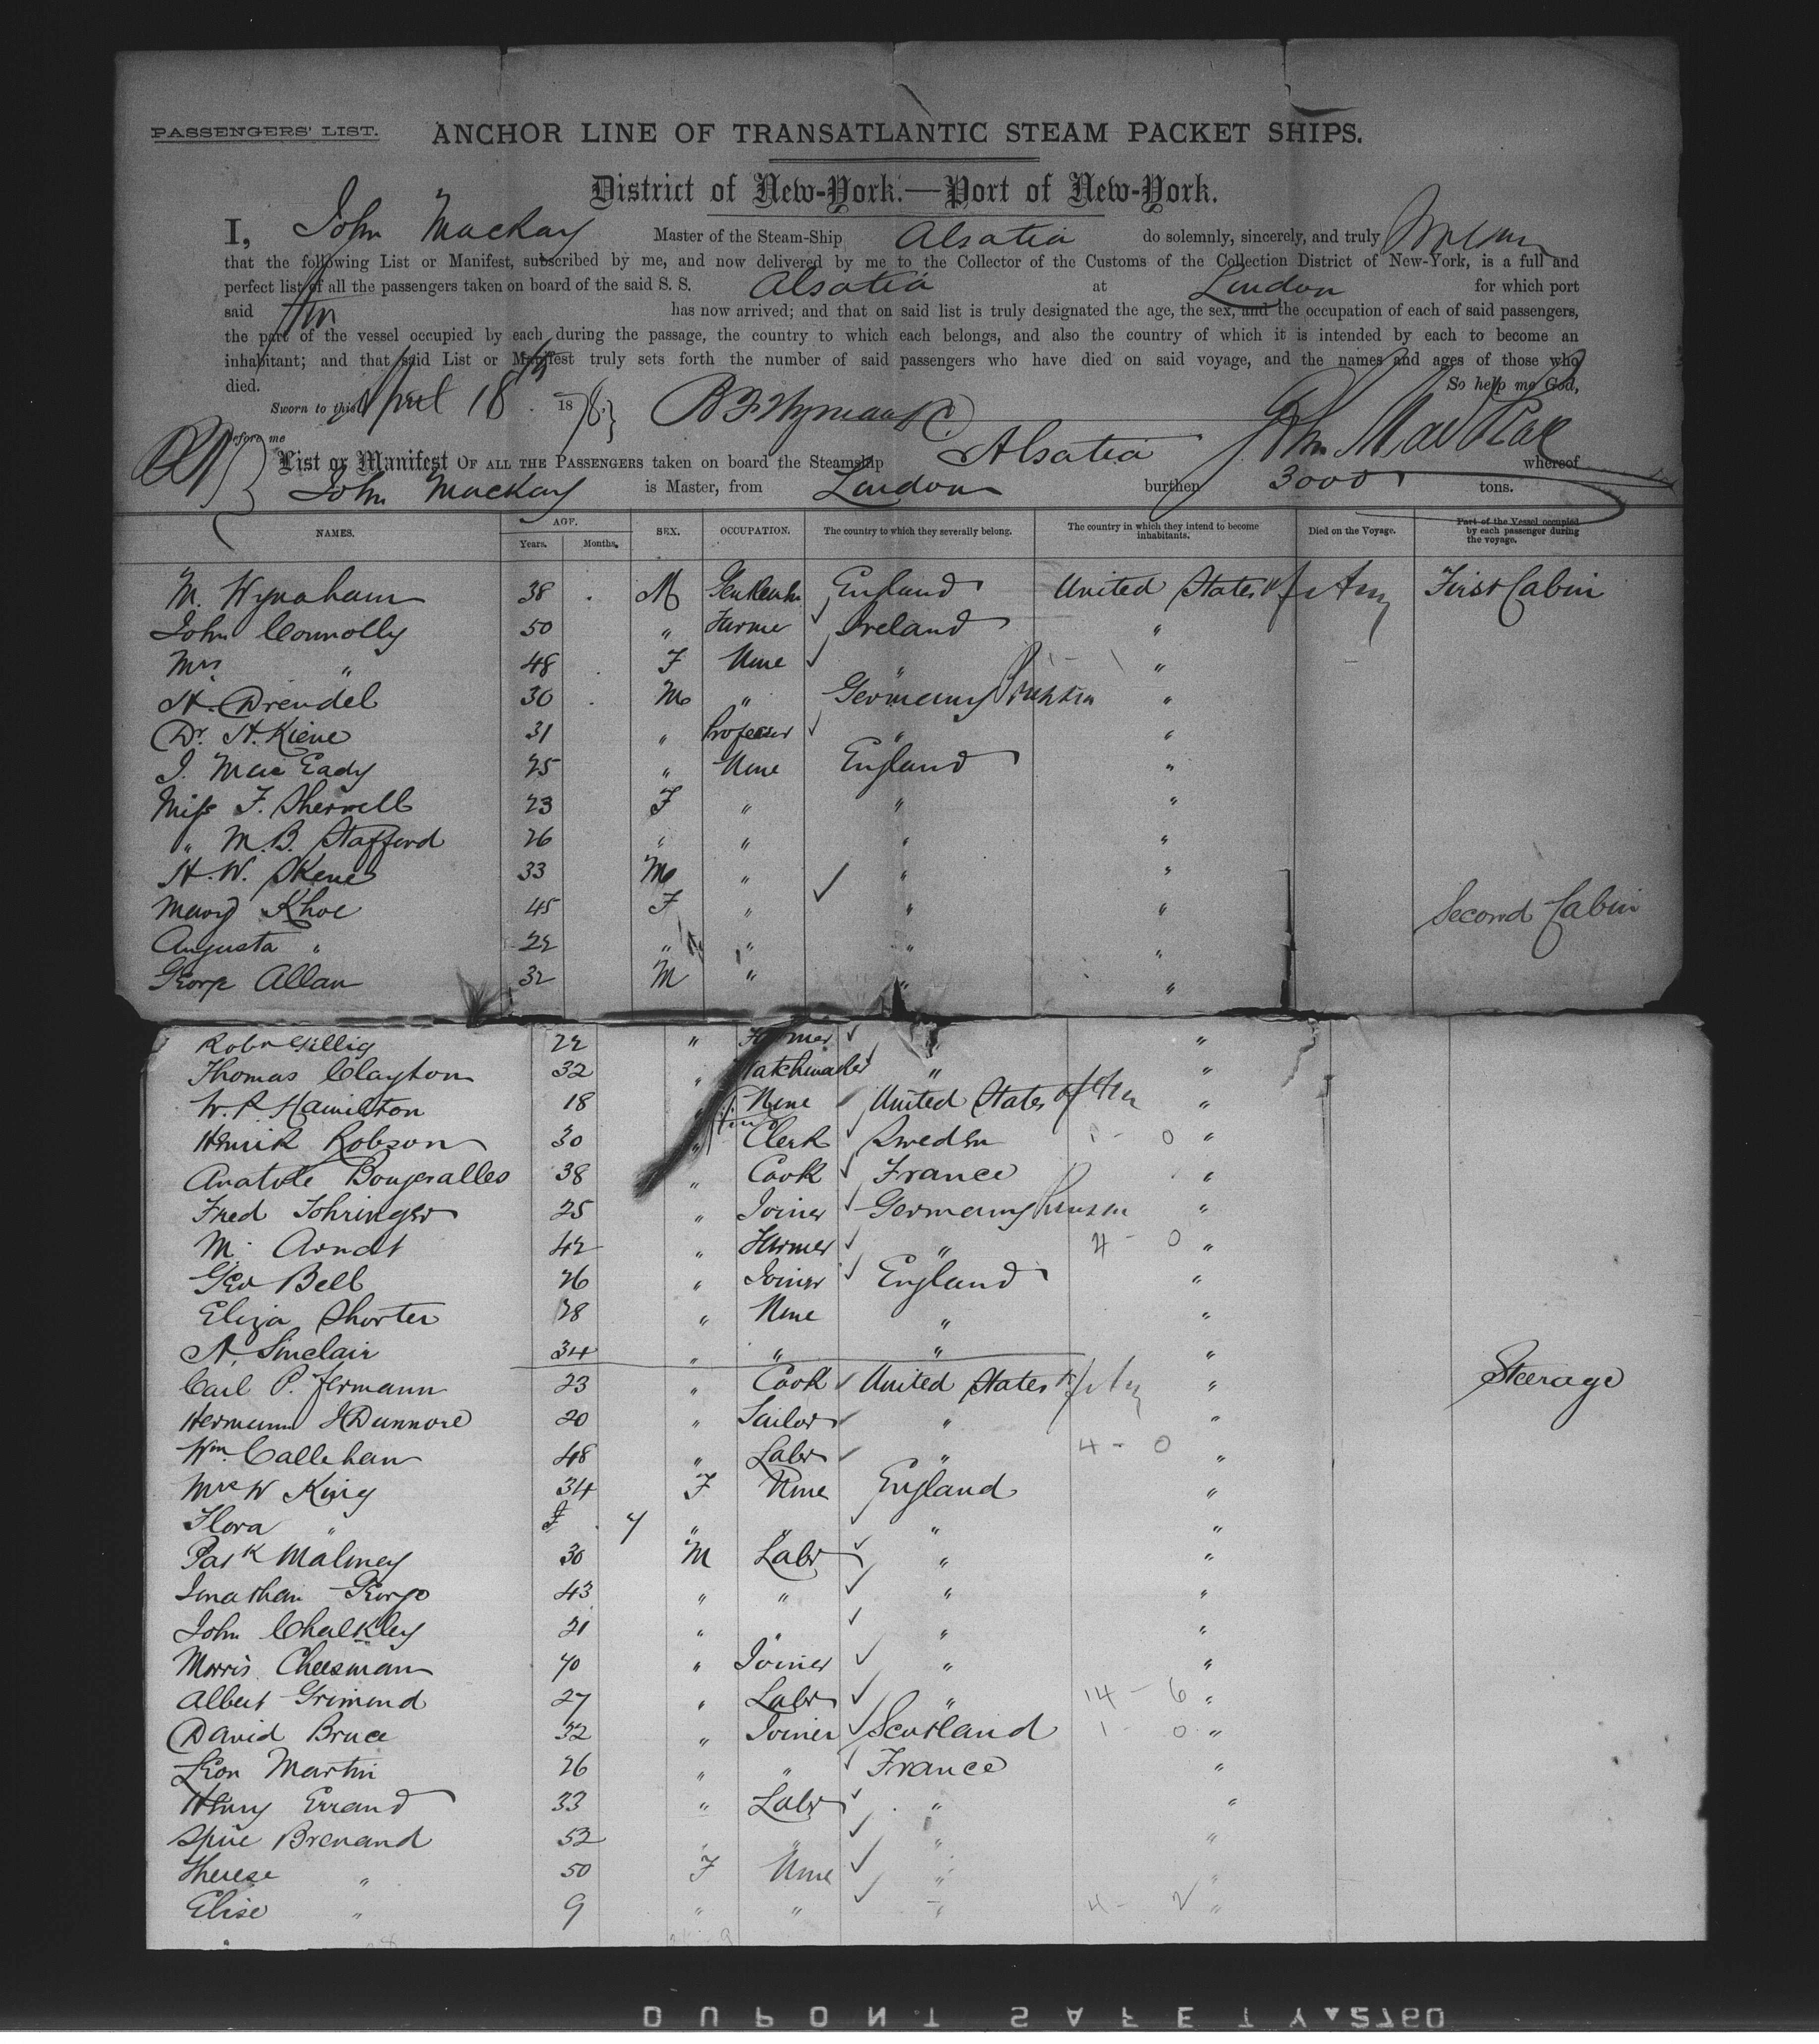 PASSENGERS' LIST.
ANCHOR LINE OF TRANSATLANTIC STEAM PACKET SHIPS.
District of New-York.—Port of New-York.
I, John Mackay Master of the Steam-Ship Alsatia do solemnly, sincerely, and truly
that the following List or Manifest, subscribed by me, and now delivered by me to the Collector of the Customs of the Collection District of New-York, is a full and
perfect list of all the passengers taken on board of the said S. S. Alsatia at London for which port
said has now arrived; and that on said list is truly designated the age, the sex, and the occupation of each of said passengers,
the part of the vessel occupied by each during the passage, the country to which each belongs, and also the country of which it is intended by each to become an
inhabitant; and that said List or Manifest truly sets forth the number of said passengers who have died on said voyage, and the names and ages of those who
died. So help me God,
Sworn to this April 18th 1878.
before me
List or Manifest OF ALL THE PASSENGERS taken on board the Steamship Alsatia whereof
John Mackay is Master, from London burthen 3000 tons.
NAMES. AGE. Years. Months. SEX. OCCUPATION. The country to which they severally belong. The country in which they intend to become inhabitants. Died on the Voyage. Part of the Vessel occupied by each passenger during the voyage.
M. Wyndham 38 M England United States of First Cabin
John Connolly 50 " Farmer Ireland "
Mrs " 48 F None " "
H. Drendel 30 M " Germany Prussia "
Dr. H. Kiene 31 " Professor " "
J. Mac Eady 25 " None England "
Miss F. Sherwell 23 F " " "
" M. B. Stafford 26 " " " "
H. W. Skene 33 M " " "
Mary Khoe 45 F " " " Second Cabin
Augusta " 22 " " " "
George Allan 32 M " " "
Robt Gillig 22 " Farmer " "
Thomas Clayton 32 " Watchmaker " "
W. R Hamilton 18 " None United States of "
Henrik Robson 30 " Clerk Sweden 1 - 0 "
Anatole Bougeralles 38 " Cook France "
Fred Tohringer 25 " Joiner Germany Prussia "
M. Arndt 42 " Farmer " 4 - 0 "
Geo Bell 26 " Joiner England "
Eliza Shorter 28 " None " "
A. Sinclair 34 " " " "
Carl P. Jermann 23 " Cook United States of " Steerage
Hermann 20 " Sailor " "
Wm Callehan 48 " Labr " 4 - 0 "
Mrs W King 34 F None England "
Flora " 7 " " " "
Patk Maloney 30 M Labr " "
Jonathan George 43 " " " "
John Chalkley 21 " " " "
Morris Cheesman 40 " Joiner " "
Albert Grimond 27 " Labr " 14 - 6 "
David Bruce 32 " Joiner Scotland 1 - 0 "
Leon Martin 26 " " France "
Henry Errand 33 " Labr " "
Brenand 52 " " " "
Therese " 50 F None " "
Elise " 9 " " " 4 - 2 "
DUPONT SAFETY 2760